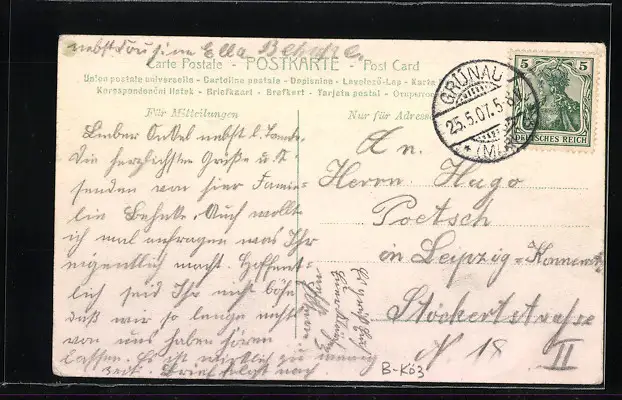 nebst Cousine Ella Behnke.
Carte Postale - POSTKARTE - Post Card
Union postale universelle - Cartolina postale - Dopisnice - Levelező-Lap - Karta
Korespondenční lístek - Briefkaart - Brefkort - Tarjeta postal -
Für Mitteilungen
Nur für Adresse
GRÜNAU
25.5.07. 5-6
(MARK)
5 5
DEUTSCHES REICH
Lieber Onkel nebst l. Tante
Die herzlichsten Grüße u. s.
senden von hier Fami-
lie Behnke. Auch wollte
ich mal anfragen was Ihr
eigentlich macht. Hoffent-
lich seid Ihr nicht böse
daß wir so lange nichts
von uns haben hören
lassen. Es ist wirklich zu wenig
Zeit. Brief folgt nach
An.
Herrn Hugo
Poetsch
in Leipzig-Konnewitz
Stöckertstrasse
N 18 II
Es grüßt
Euch
B-K63